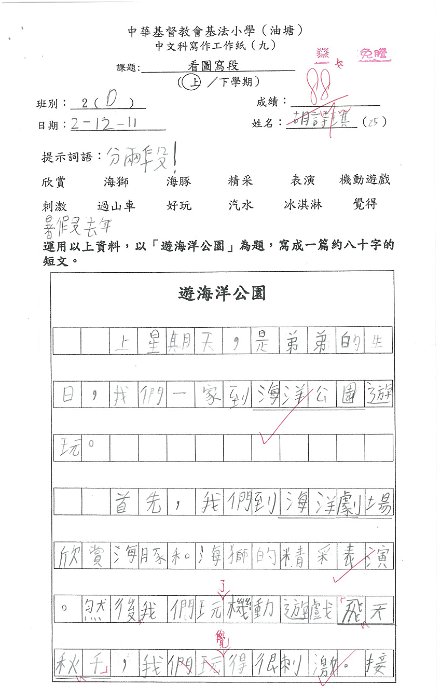 中華基督教會基法小學（油塘）
中文科寫作工作紙（九）
課題：看圖寫段
（上／下學期）
免騰
班別：2（D） 成績：88
日期：2-12-11 姓名：胡譯琪（25）
提示詞語：分兩段！
欣賞 海獅 海豚 精采 表演 機動遊戲
刺激 過山車 好玩 汽水 冰淇淋 覺得
暑假 去年
運用以上資料，以「遊海洋公園」為題，寫成一篇約八十字的
短文。
遊海洋公園
上星期天，是弟弟的生
日，我們一家到海洋公園遊
玩。
首先，我們到海洋劇場
欣賞海豚和海獅的精采表演
。然後我們玩機動遊戲飛天
了
秋千，我們玩得很刺激。接
覺